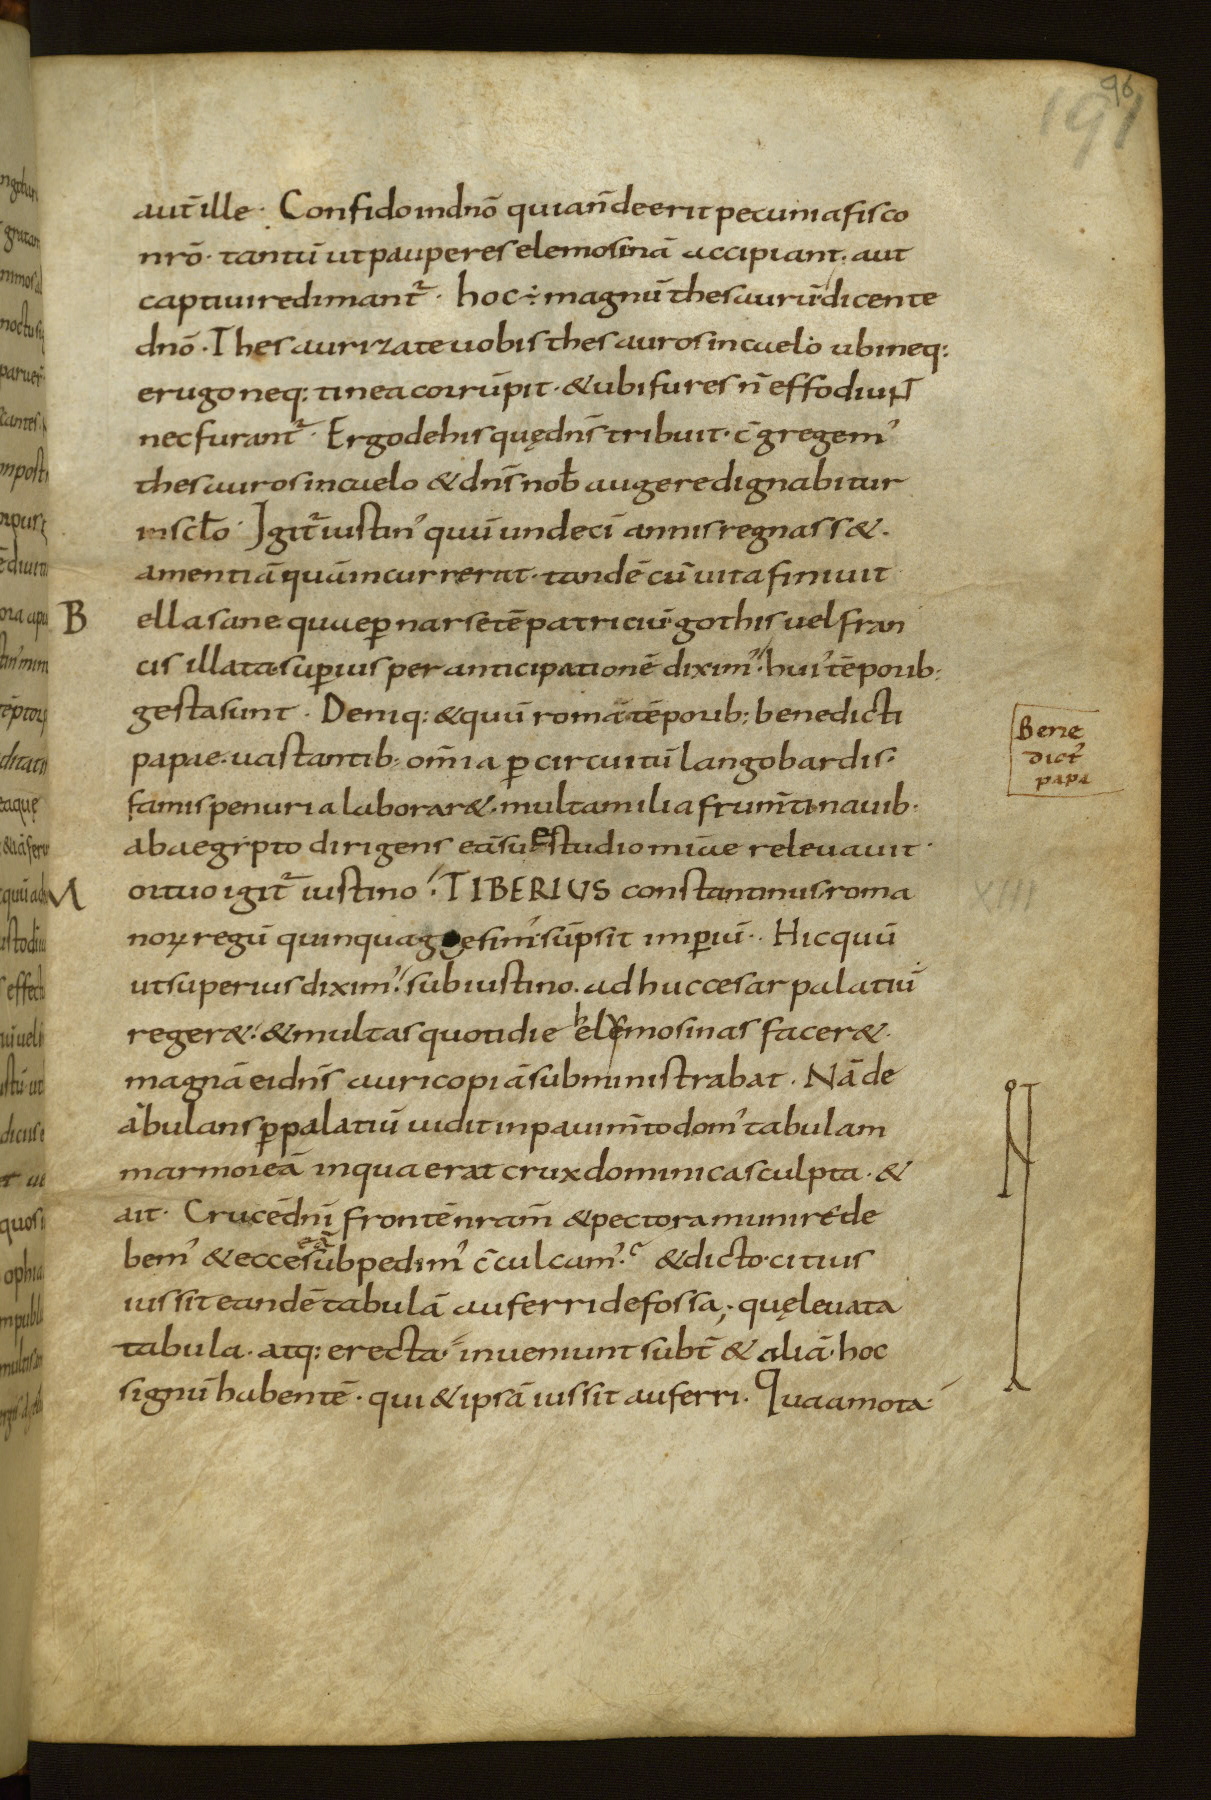 96
191
aut̄ ille · Confido in dnō quia n̄ deerit pecunia fisco
nrō · tantū ut pauperes elemosinā accipiant · aut
captiui redimant᷑ · hoc ÷ magnū thesaurū dicente
dnō · Thesaurizate uobis thesauros in caelo ubi neq:
erugo neq: tinea corrūpit · & ubi fures n̄ effodiuɴᴛ
nec furant᷑ · Ergo de his quę dn̄s tribuit · c̄gregem᾽
thesauros in caelo & dn̄s nob̄ augere dignabitur
in scl̄o · Igit᷑ iustin᾽ quū undecī annis regnass& ·
amentiā quā incurrerat · tandē cū uita finiuit
B ella sane quae ꝑ narsetē patriciū gothis uel fran
cis illata suꝑius per anticipationē dixim᾽ · hui᾽ tēporib·
gesta sunt · Deniq: & quū romā tēporib; benedicti
papae · uastantib; om̄ia ꝑ circuitū langobardis ·
famis penuria laborar& · multa milia frum̄ti nauib·
ab aegypto dirigens eā suE studio m̄iae releuauit ·
M ortuo igit᷑ iustino · TIBERIUS constantinus roma
noꝝ regū quinquaggesim᾽ sūpsit imꝑiū · Hic quū
ut superius dixim᾽ · sub iustino · adhuc cesar palatiū
reger& · & multas quotidie elemosinas facer& ·
magnā ei dn̄s auri copiā subministrabat · Nā de
ābulans ꝑ palatiū uidit in pauim̄to dom᾽ tabulam
marmoreā in qua erat crux dominica sculpta · &
ait · Crucē dn̄i frontē nram̄ & pectora munire de
bem᾽ & ecce eā sub pedim᾽ c̄culcam᾽ · & dicto citius
iussit eandē tabulā auferri defossa; · quę leuata
tabula · atq: erecta · inueniunt subt̄ & aliā · hoc
signū habentē · qui & ipsā iussit auferri · Qua amota
Bene
dict᾽
papa
XIII